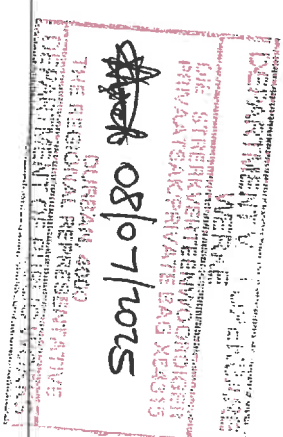 DEPARTMENT V
WERKE
DIE STREEKVERTEENWOORDIGER
PRIVAATSAK/PRIVATE BAG X54315
08/07/2025
DURBAN 4000
THE REGIONAL REPRESENTATIVE
DEPARTMENT OF PUBLIC WORKS